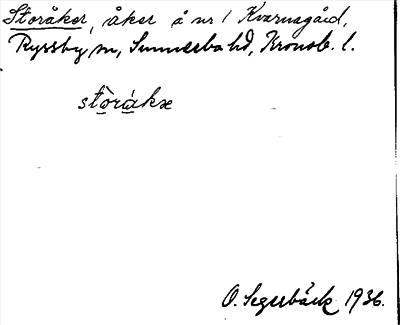 Storåker, åker å nr 1 Kvarnagård,
Ryssby sn, Sunnerbo hd, Kronob. l.
stòràkæ
O. Segerbäck 1936.